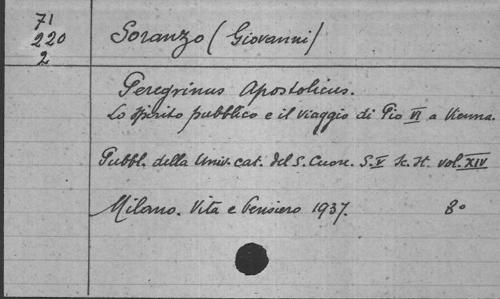 71
220
2
Soranzo (Giovanni)
Peregrinus Apostolicus.
Lo spirito pubblico e il viaggio di Pio VI a Vienna.
Pubbl. della Univ. cat. del S. Cuore. S. V Sc. St. vol. XIV
Milano. Vita e Pensiero 1937. 8°